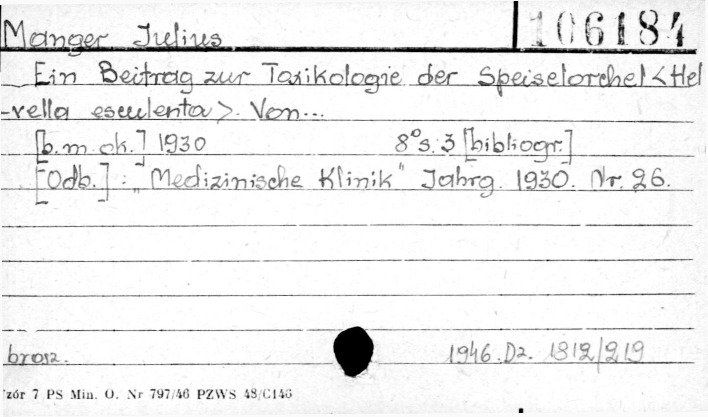 Manger Julius
106184
Ein Beitrag zur Toxikologie der Speiselorchel <Hel
-vella esculenta>. Von...
[b.m.ok.] 1930 8° s. 3 [bibliogr.]
[Odb.]: "Medizinische Klinik" Jahrg. 1930. Nr. 26.
brosz. 1946. Dz. 1812/219
zór 7 PS Min. O. Nr 797/46 PZWS 48/C146